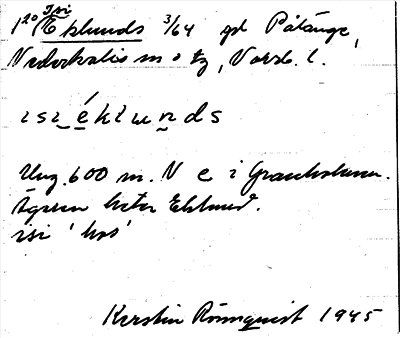 I
1 20 Eklunds 3/64 gd Pålänge,
Nederkalix sn o tg, Norrb. l.
ɪsɪ ékluṇds
Ung. 600 m. N e i
Ägaren heter Eklund.
isi 'hos'
Kerstin Rönnquist 1945